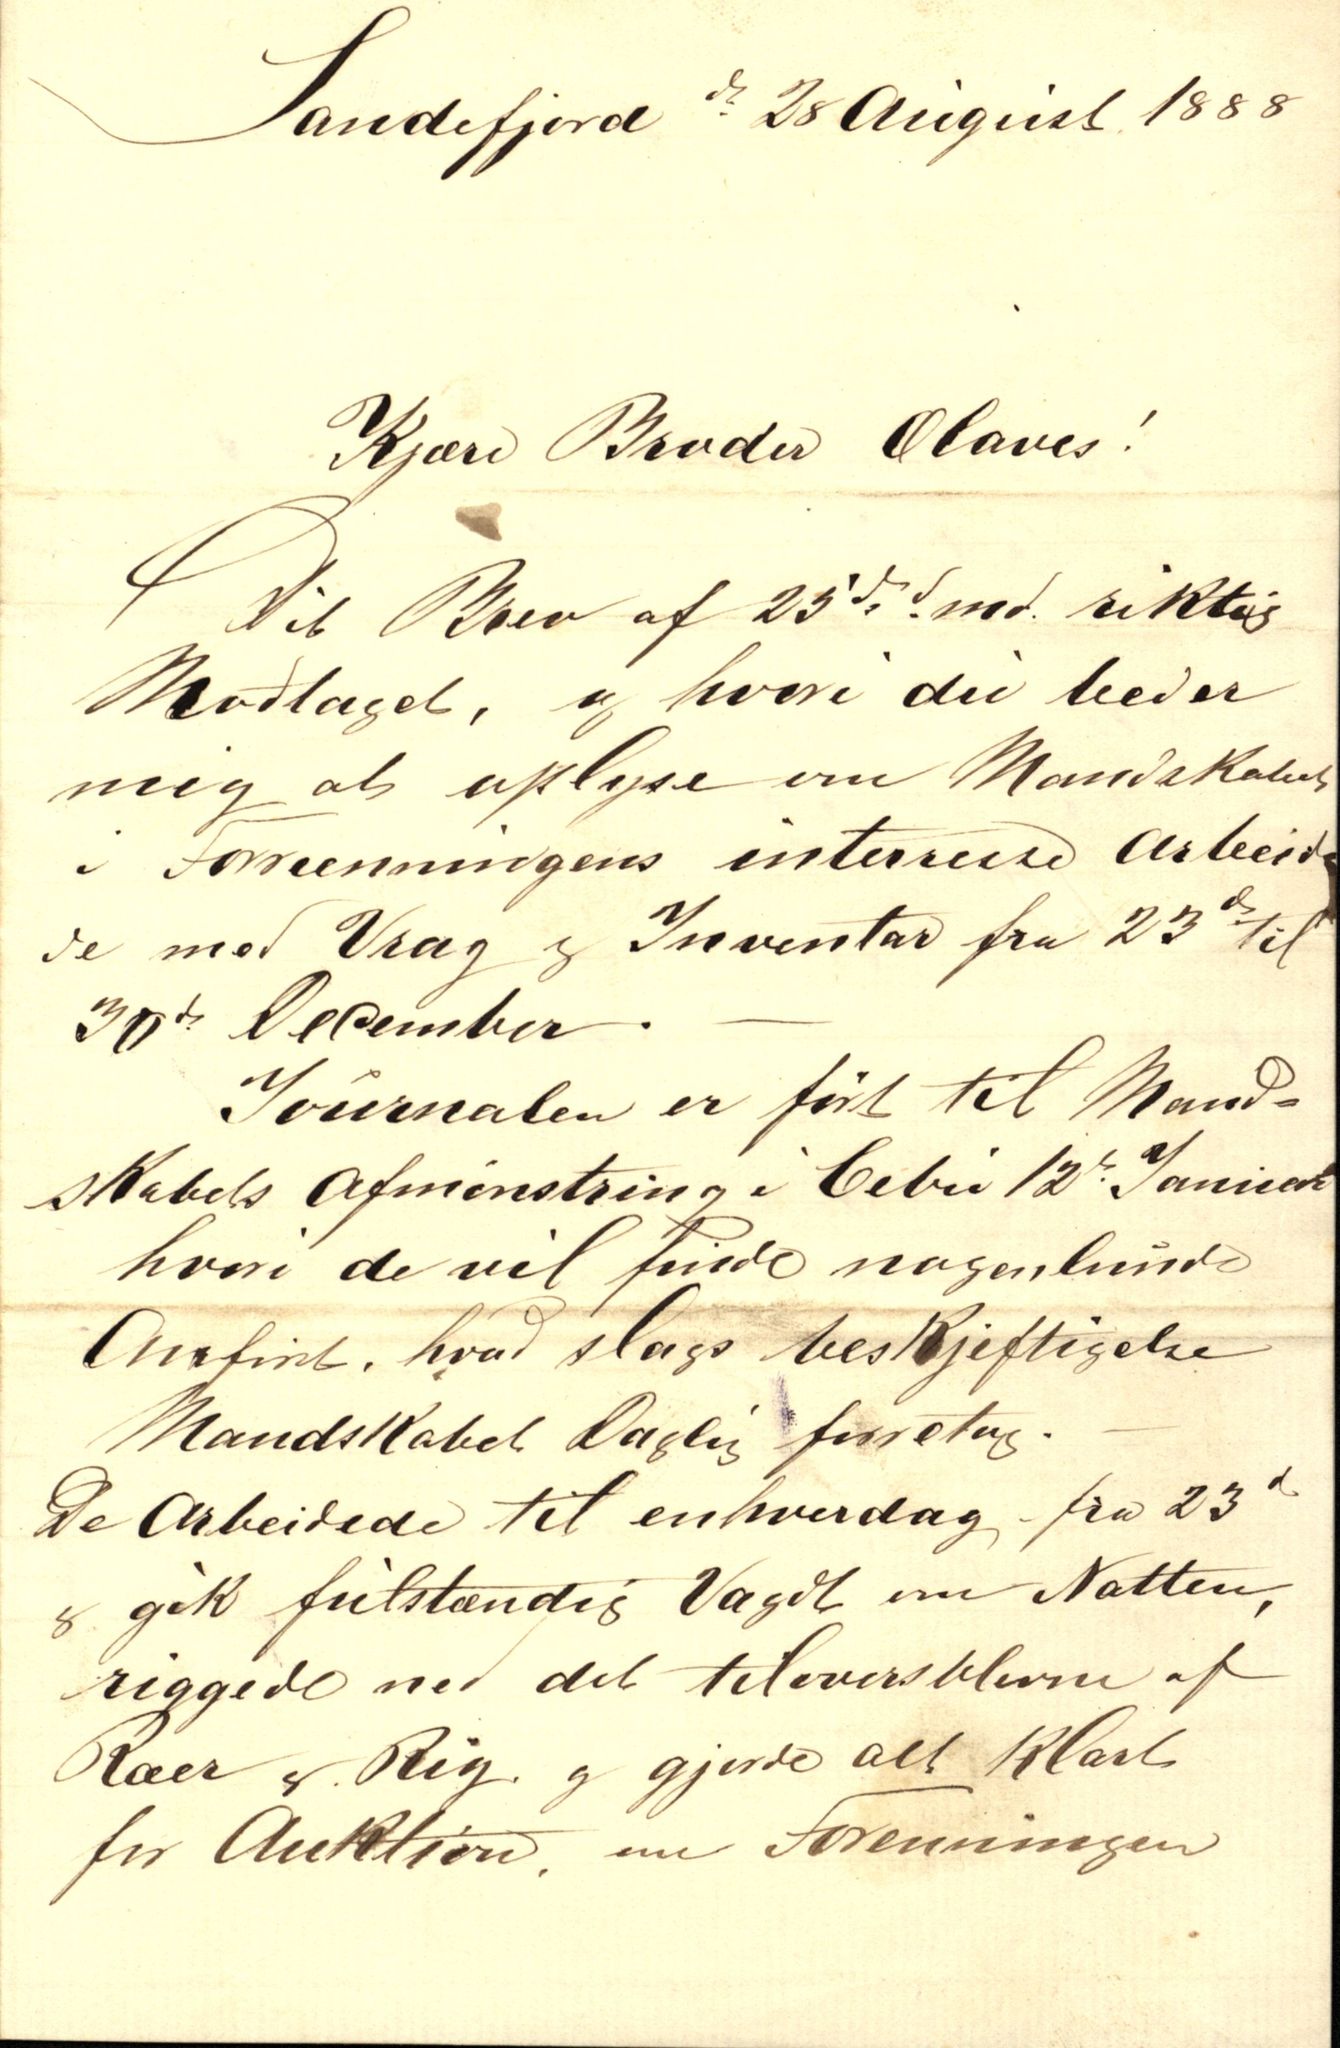 Sandefjord d. 28 August 1888
Kjære Broder Olaves!
Dit Brev af 25de d. md. riktig
Modtaget, og hvori du beder
mig at oplyse om Mandskabet
i Foreenningens interresse Arbeid
de med Vrag & Inventar fra 23de til
30de December. —
Journalen er ført til Mand-
skabets Afmønstring i Cebu 12te Januar
hvori de vil finde nogenlunde
Anført, hvad slags beskjeftigelse
Mandskabet Daglig forretog. —
De Arbeidede til enhverdag fra 23d
& gik fulstændig Vagdt om Natten,
riggede ned det tiloversblevne af
Ræer & Rig. og gjorde alt Klart
for Auktion, om Forenningen